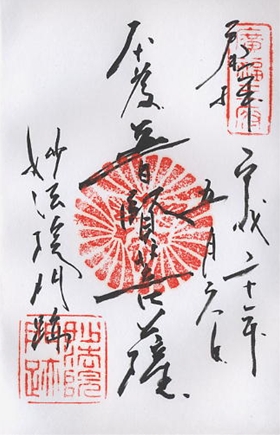 奉拝
平成二十年
五月六日
本尊 普賢菩薩
妙法院門跡
妙法院門跡